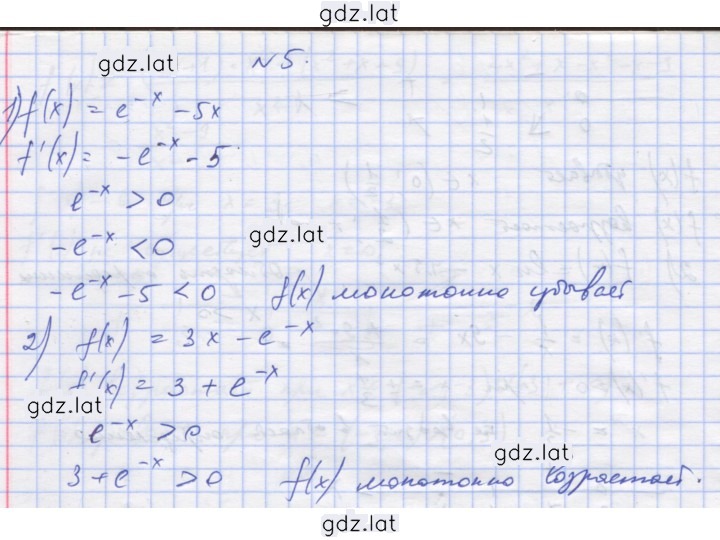 gdz.lat
gdz.lat
№5.
1) f(x) = e^{-x} - 5x
f'(x) = -e^{-x} - 5
e^{-x} > 0
gdz.lat
-e^{-x} < 0
-e^{-x} - 5 < 0 f(x) монотонно убывает
2) f(x) = 3x - e^{-x}
f'(x) = 3 + e^{-x}
gdz.lat
e^{-x} > 0
gdz.lat
3 + e^{-x} > 0 f(x) монотонно возрастает.
gdz.lat